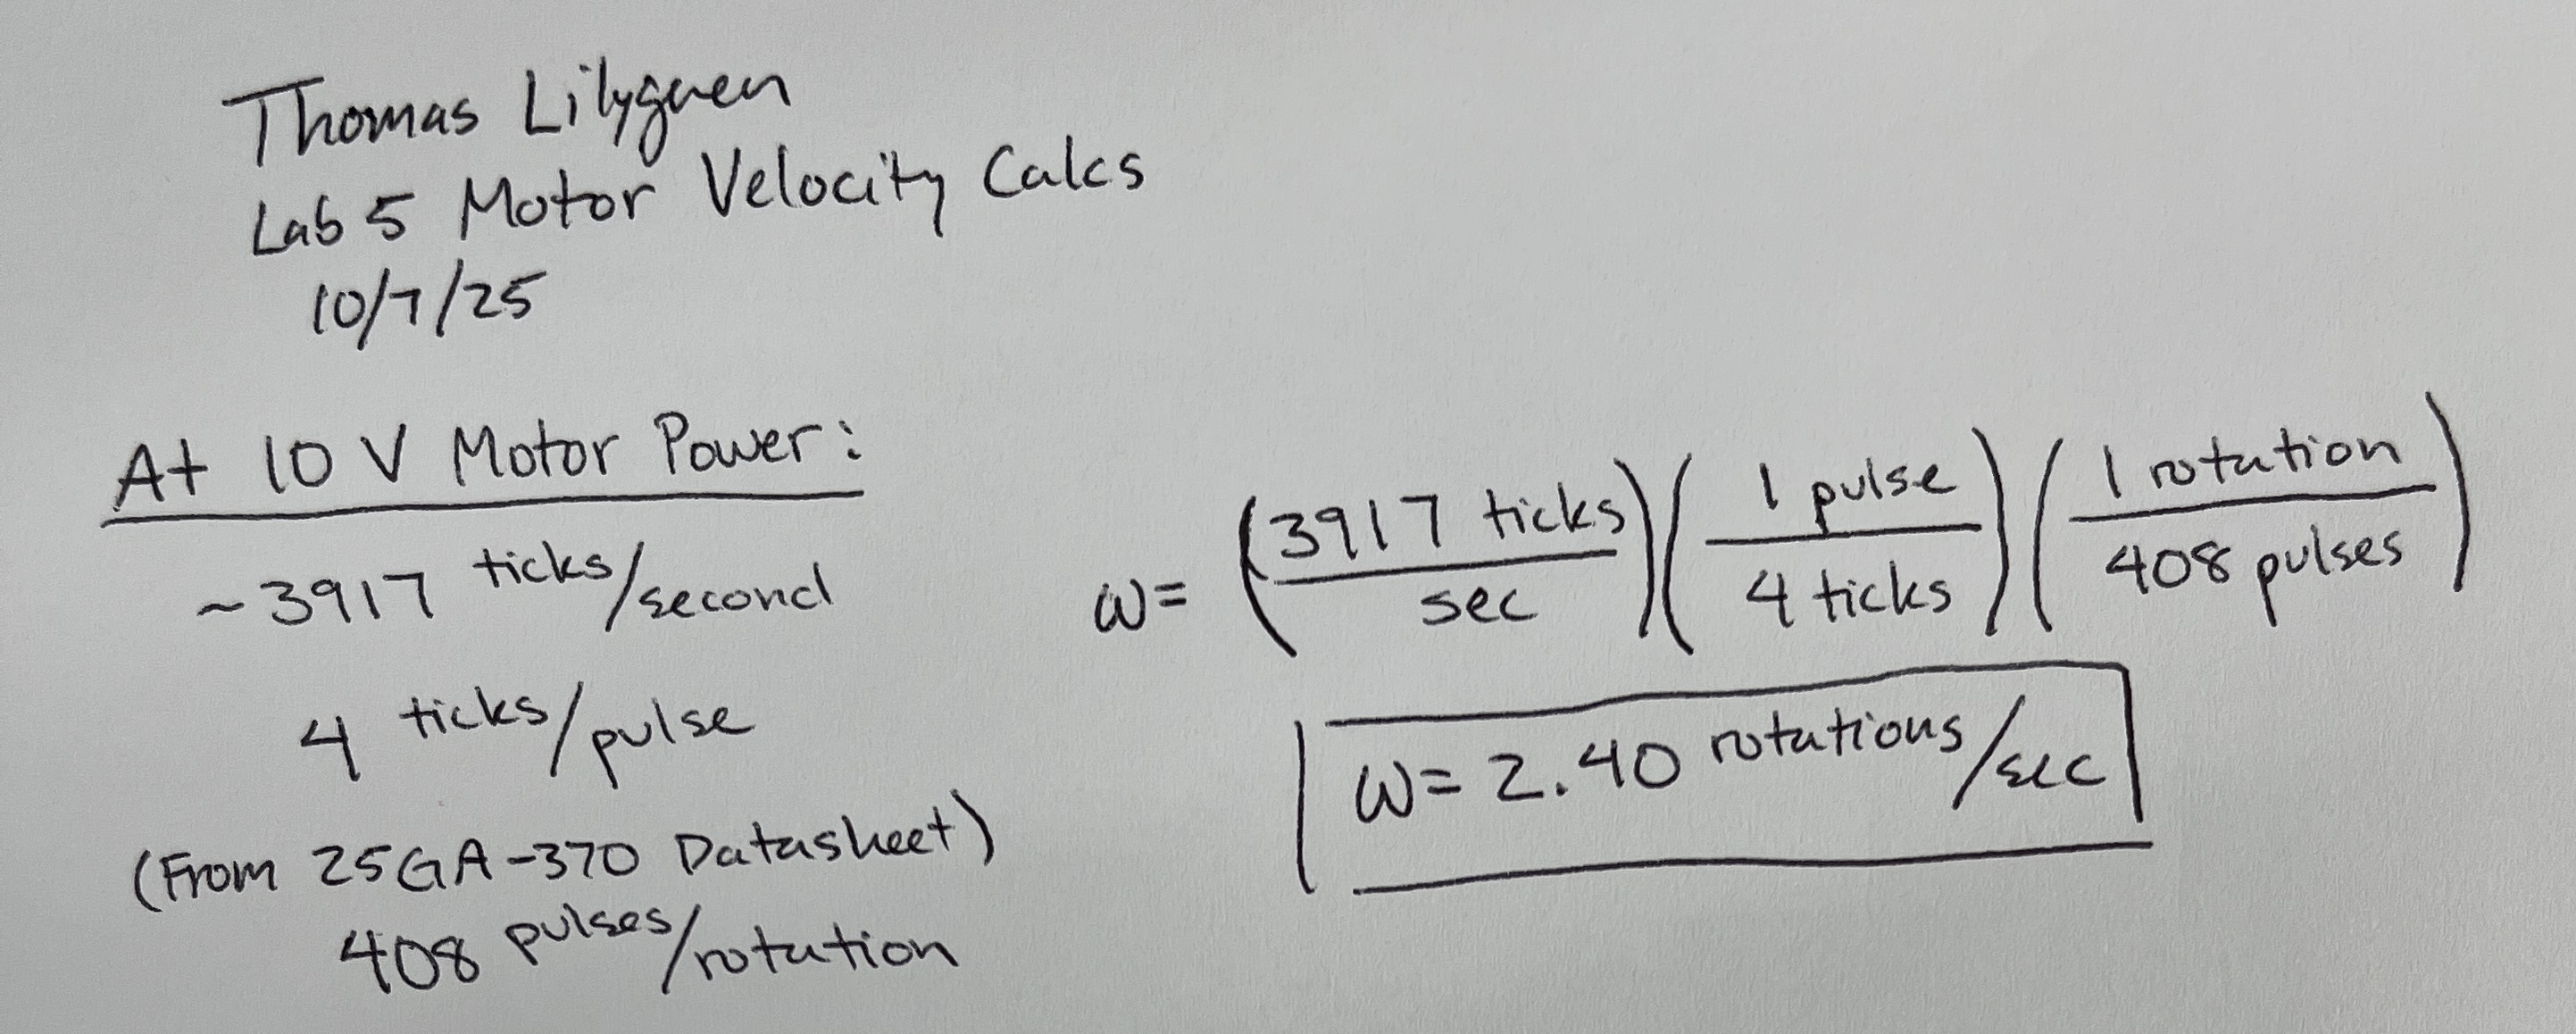 Thomas Lilygren
Lab 5 Motor Velocity Calcs
10/7/25
At 10 V Motor Power:
~3917 ticks/second
4 ticks/pulse
(From 25GA-370 Datasheet)
408 pulses/rotation
ω = (3917 ticks/sec)(1 pulse/4 ticks)(1 rotation/408 pulses)
ω = 2.40 rotations/sec